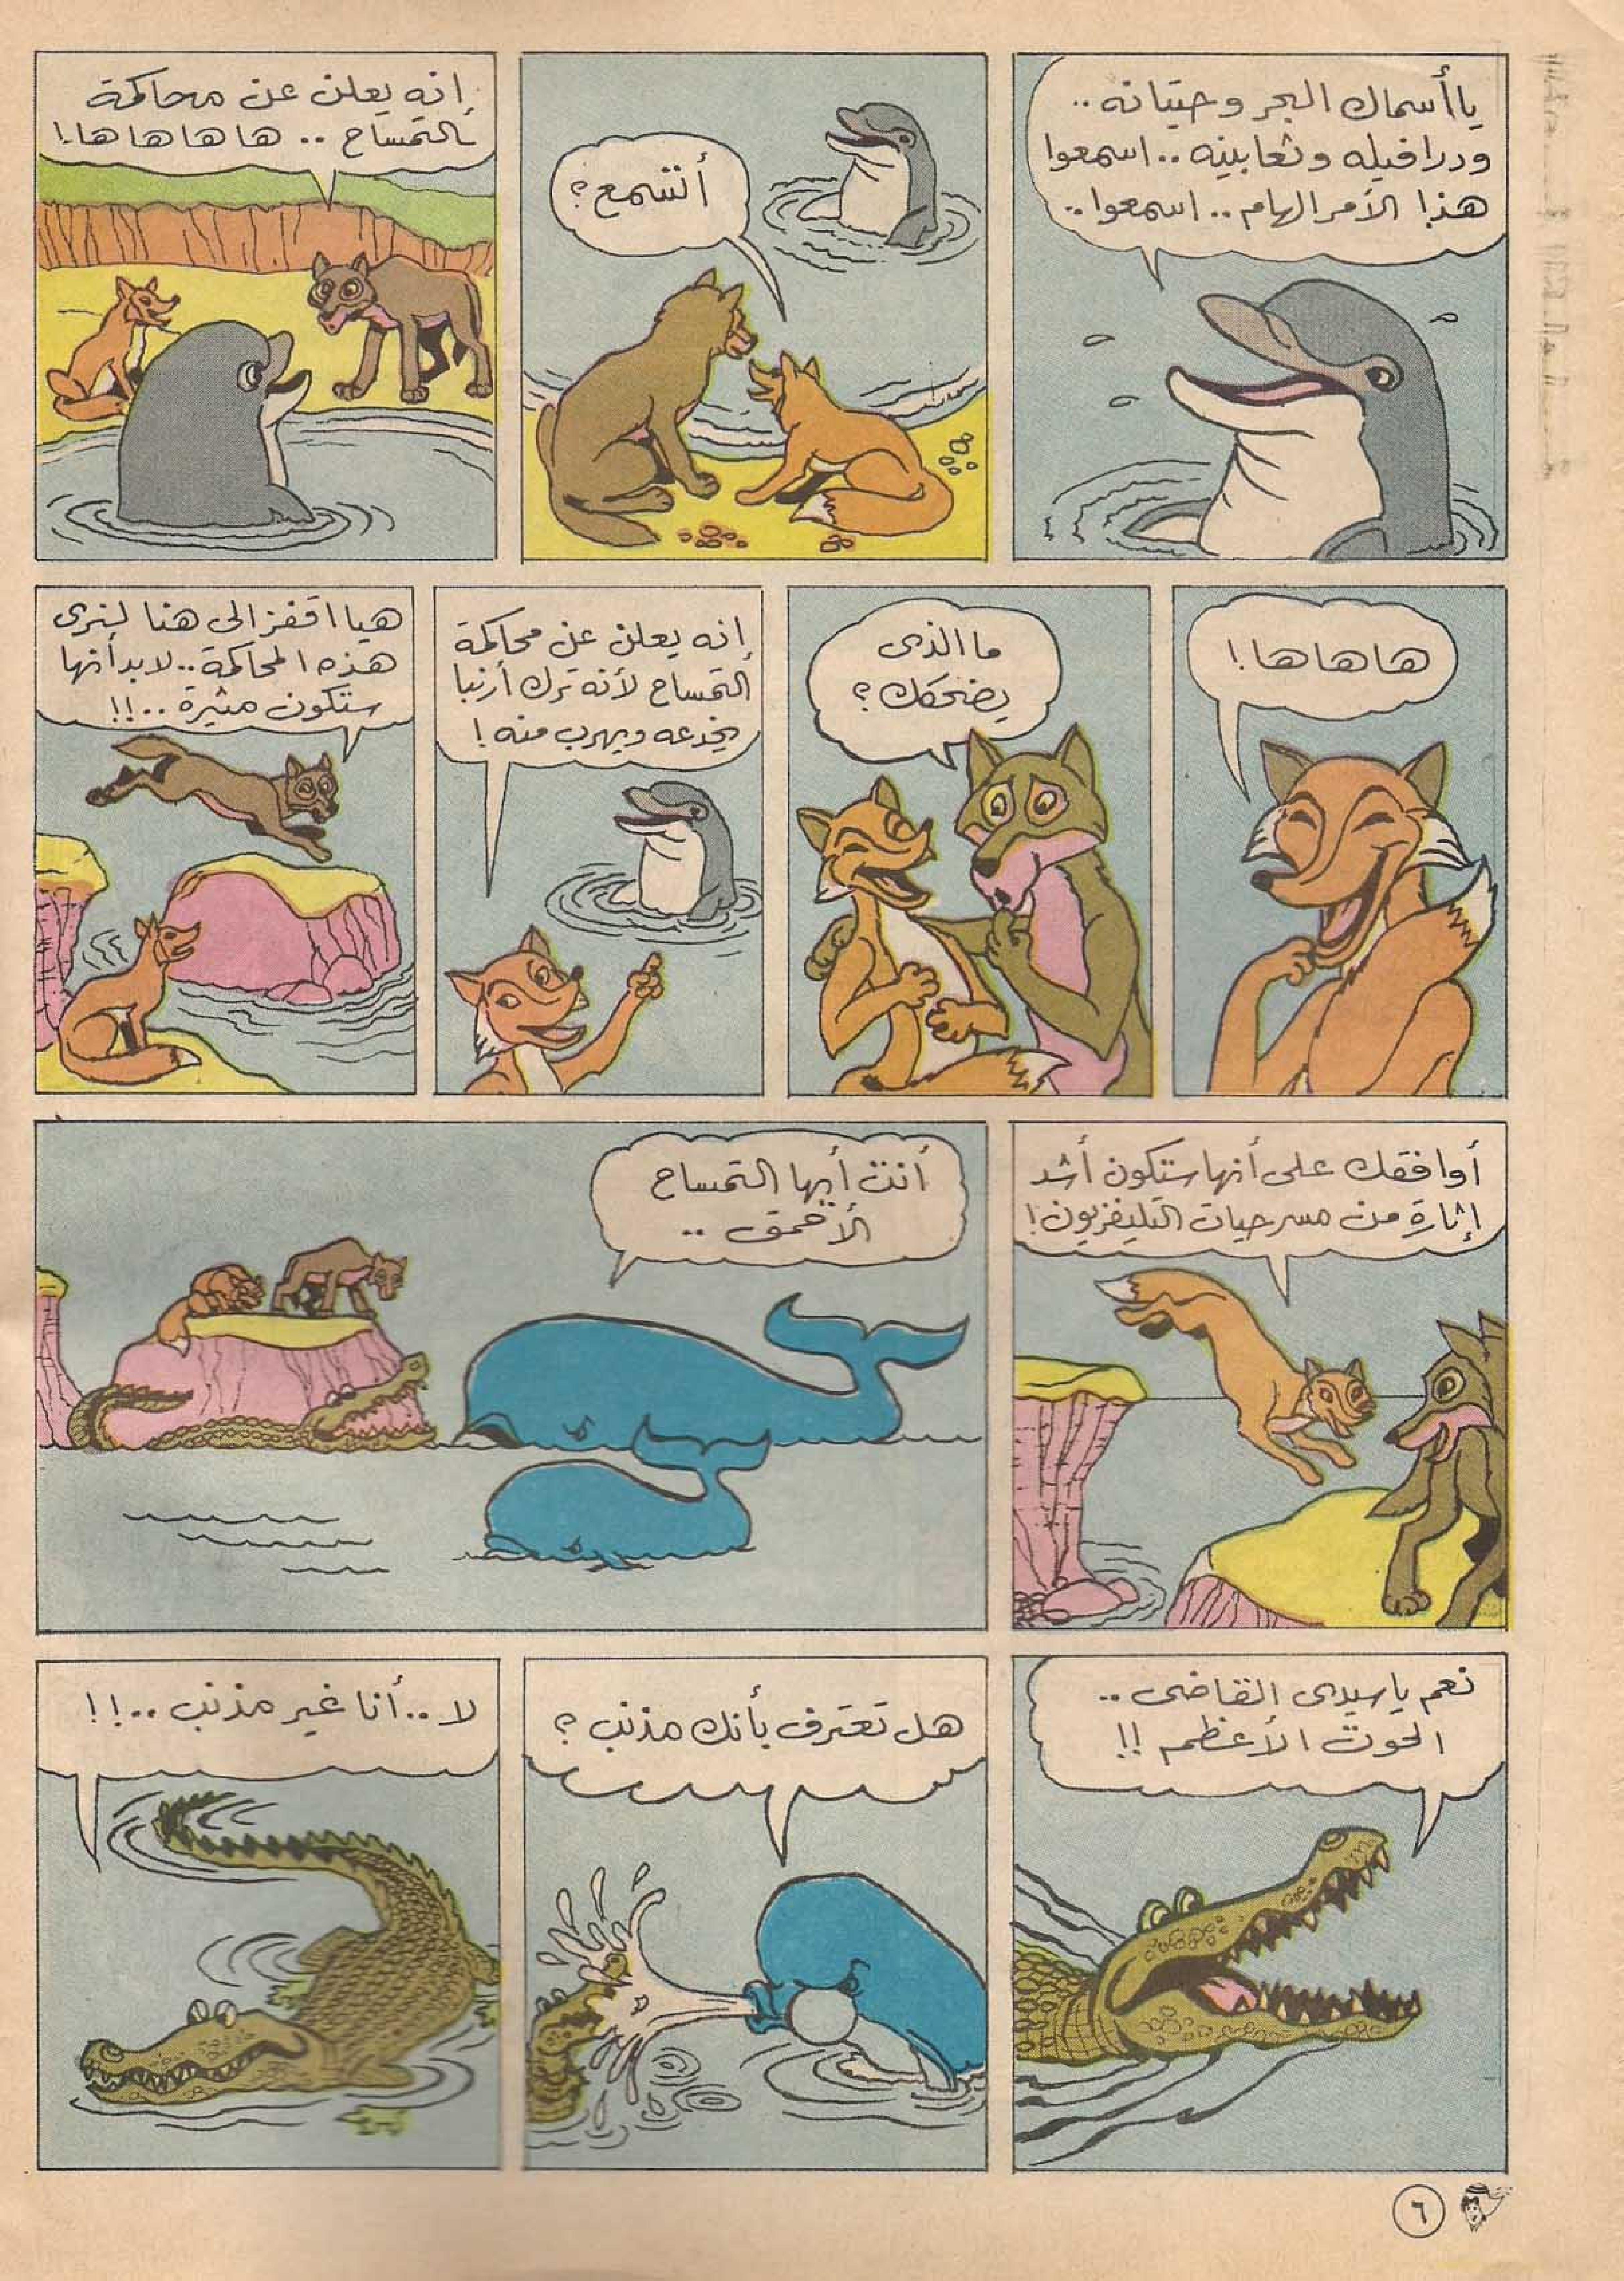 يا أسماك البحر وحيتانه ..
ودرافيله وثعابينه .. اسمعوا
هذا الأمر الهام .. اسمعوا ..
أتسمع ؟
إنه يعلن عن محاكمة
التمساح .. ها ها ها ها !
ها ها ها !
ما الذى
يضحكك ؟
إنه يعلن عن محاكمة
التمساح لأنه ترك أرنبا
يخدعه ويهرب منه !
هيا اقفز الى هنا لنرى
هذه المحاكمة .. لا بد أنها
ستكون مثيرة .. !!
أوافقك على أنها ستكون أشد
إثارة من مسرحيات التليفزيون !
أنت أيها التمساح
الأحمق ..
نعم يا سيدى القاضى ..
الحوت الأعظم !!
هل تعترف بأنك مذنب ؟
لا .. أنا غير مذنب .. !!
٦